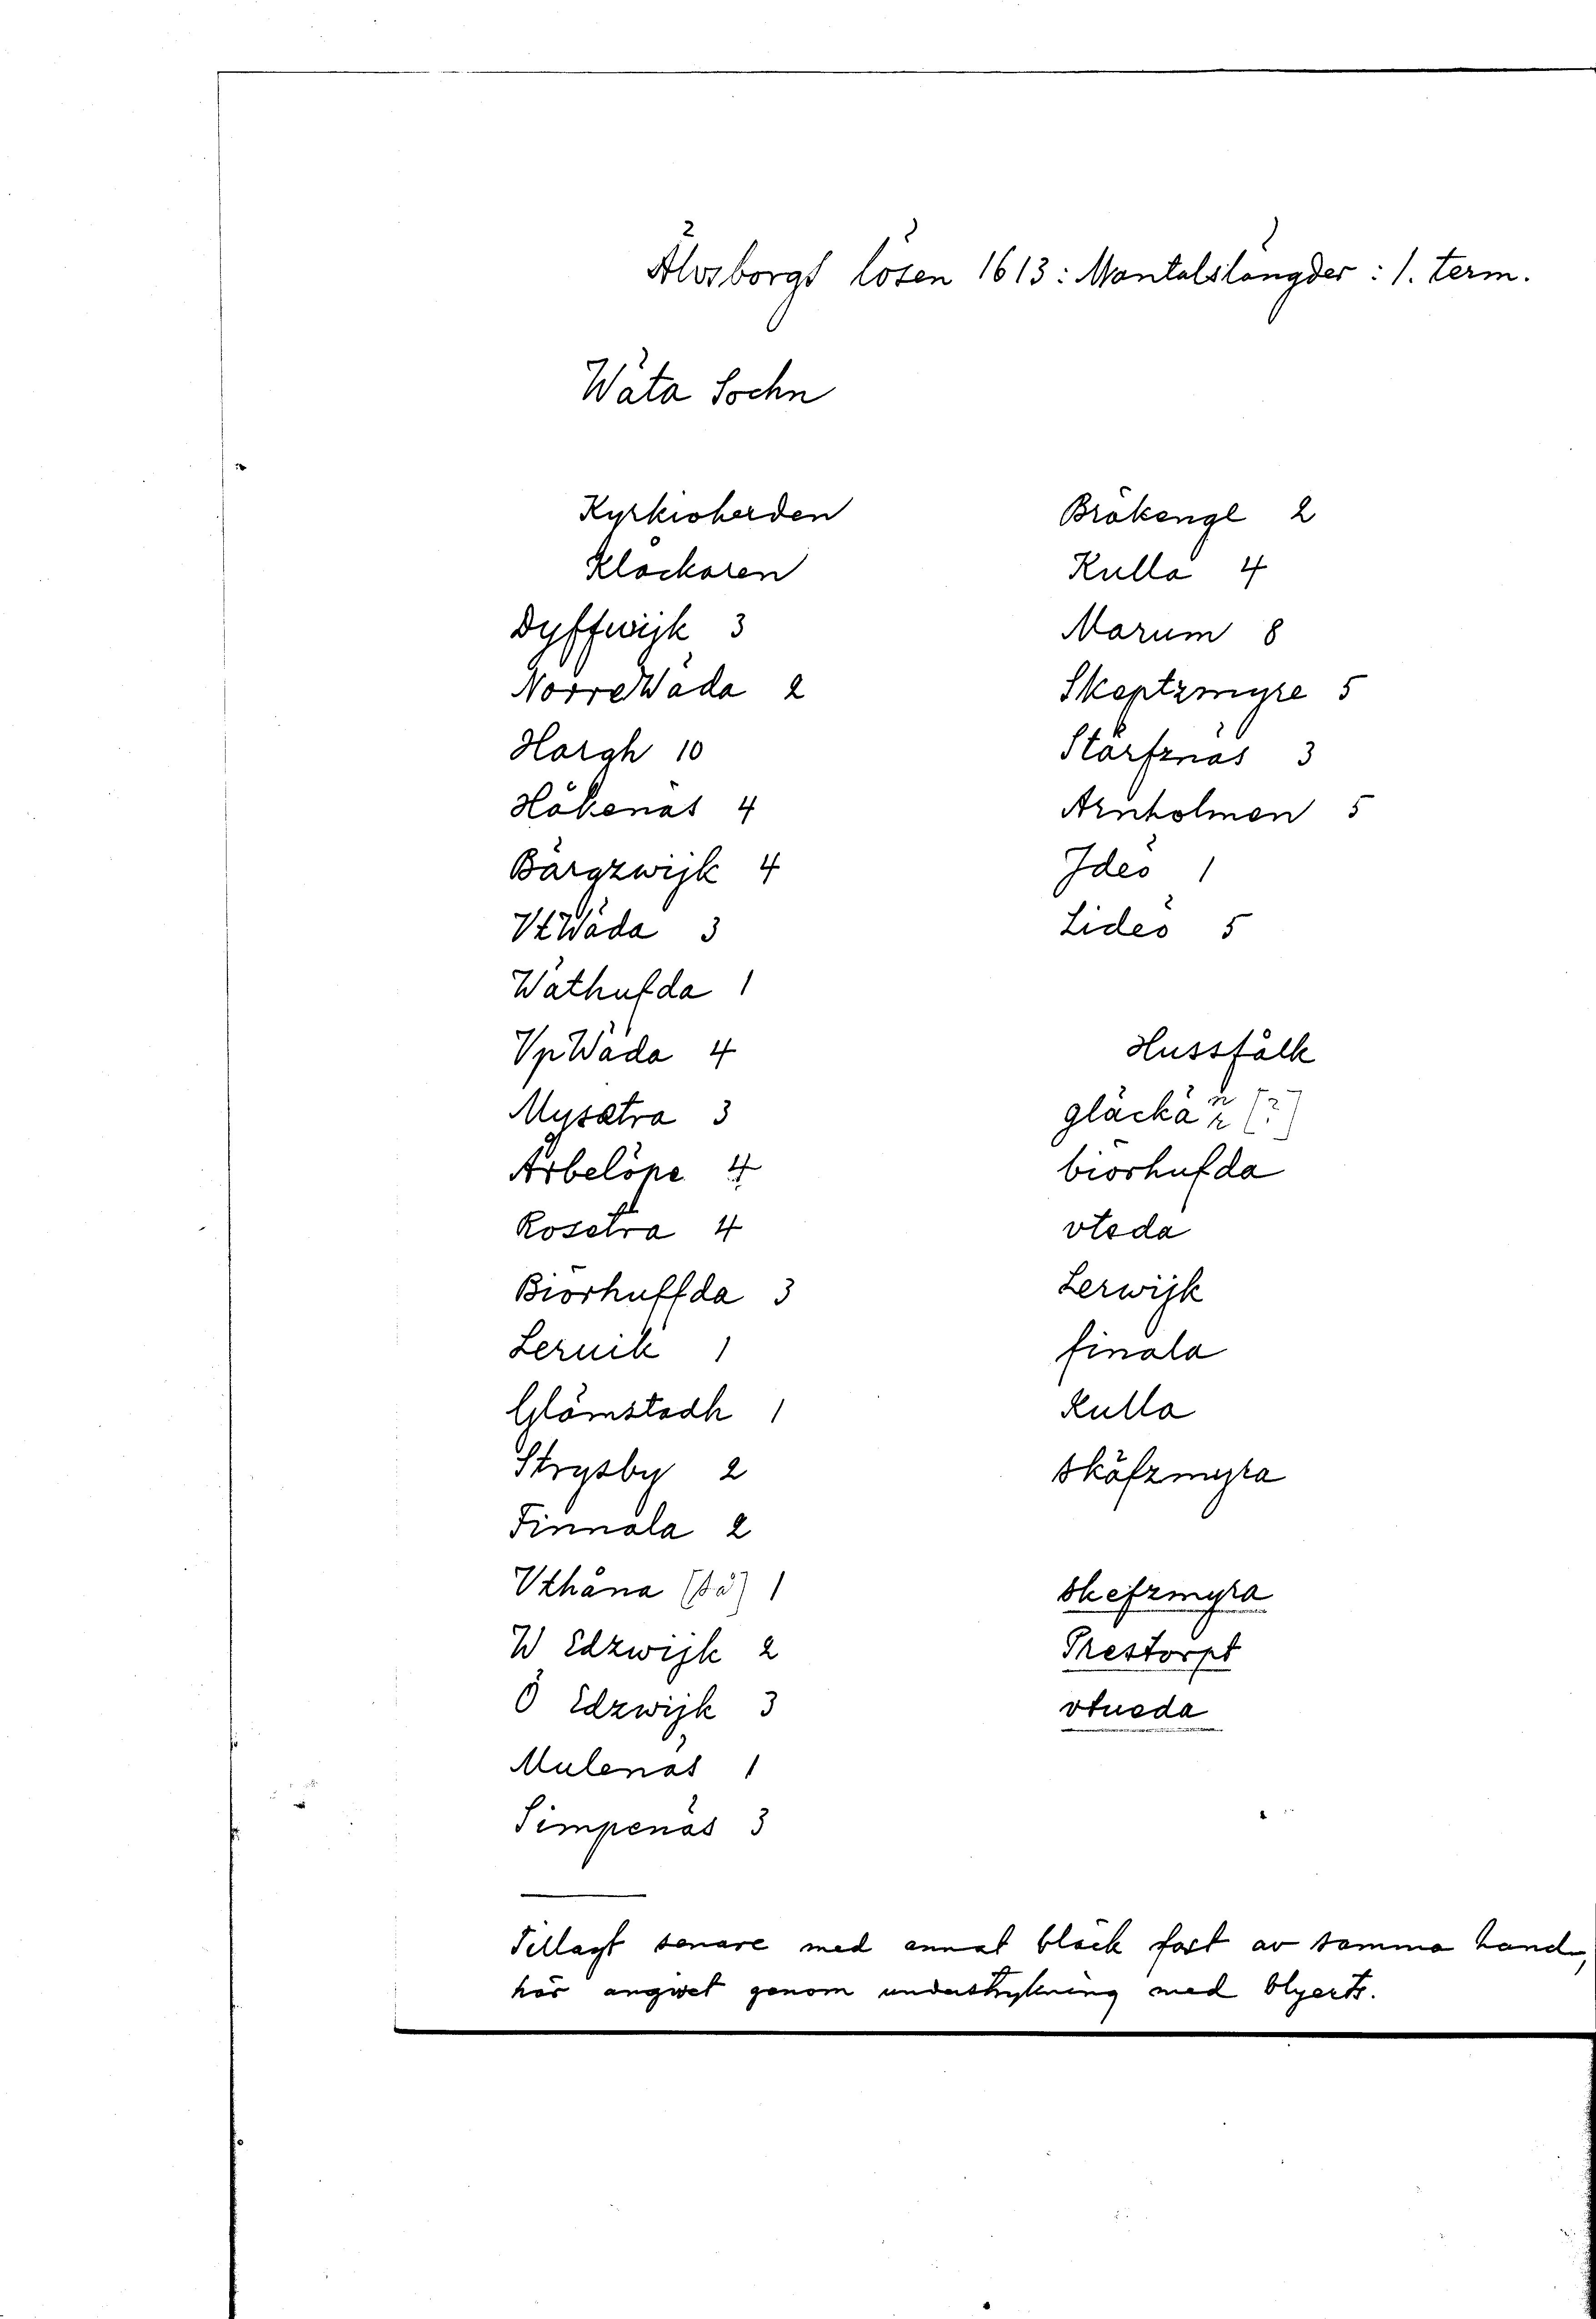 Älvsborgs lösen 1613: Mantalslängder : 1. term.
Wäta Sochn
Kyrkioherden
Klåckaren
Dyffwijk 3
NorreWäda 2
Hargh 10
Håkenäs 4
Bärgzwijk 4
VtWäda 3
Wäthufda 1
VpWäda 4
Mysätra 3
Arbelöpe 4
Rosätra 4
Biörhuffda 3
Leruik 1
Glåmstadh 1
Strysby 2
Finnåla 2
Vthåna (så) 1
W Edzwijk 2
Ö Edzwijk 3
Mulenäs 1
Simpenäs 3
Bråkengl 2
Kulla 4
Marum 8
Skeptzmyre 5
Stärfznäs 3
Arnholmen 5
Ideö 1
Lideö 5
Hussfålk
gläckä n r [?]
biörhufda
vteda
Lerwijk
finåla
Kulla
skäfzmyra
skefzmyra
Prestorps
vtueda
Tillagt senare med annat bläck fast av samma hand,
här angivet genom understrykning med blyerts.